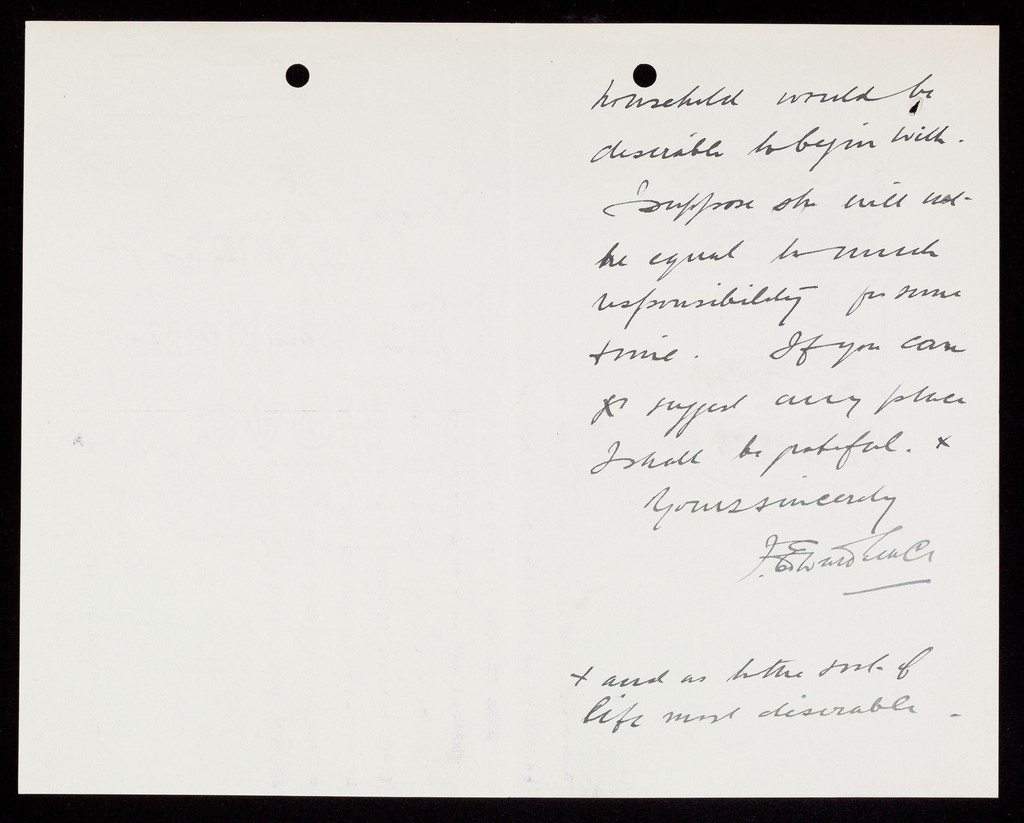 household would be
desirable to begin with.
I suppose she will not
be equal to much
responsibility for some
time. If you can
suggest any place
I shall be grateful. x
Yours sincerely
F. Edward
x and as to the sort of
life most desirable -